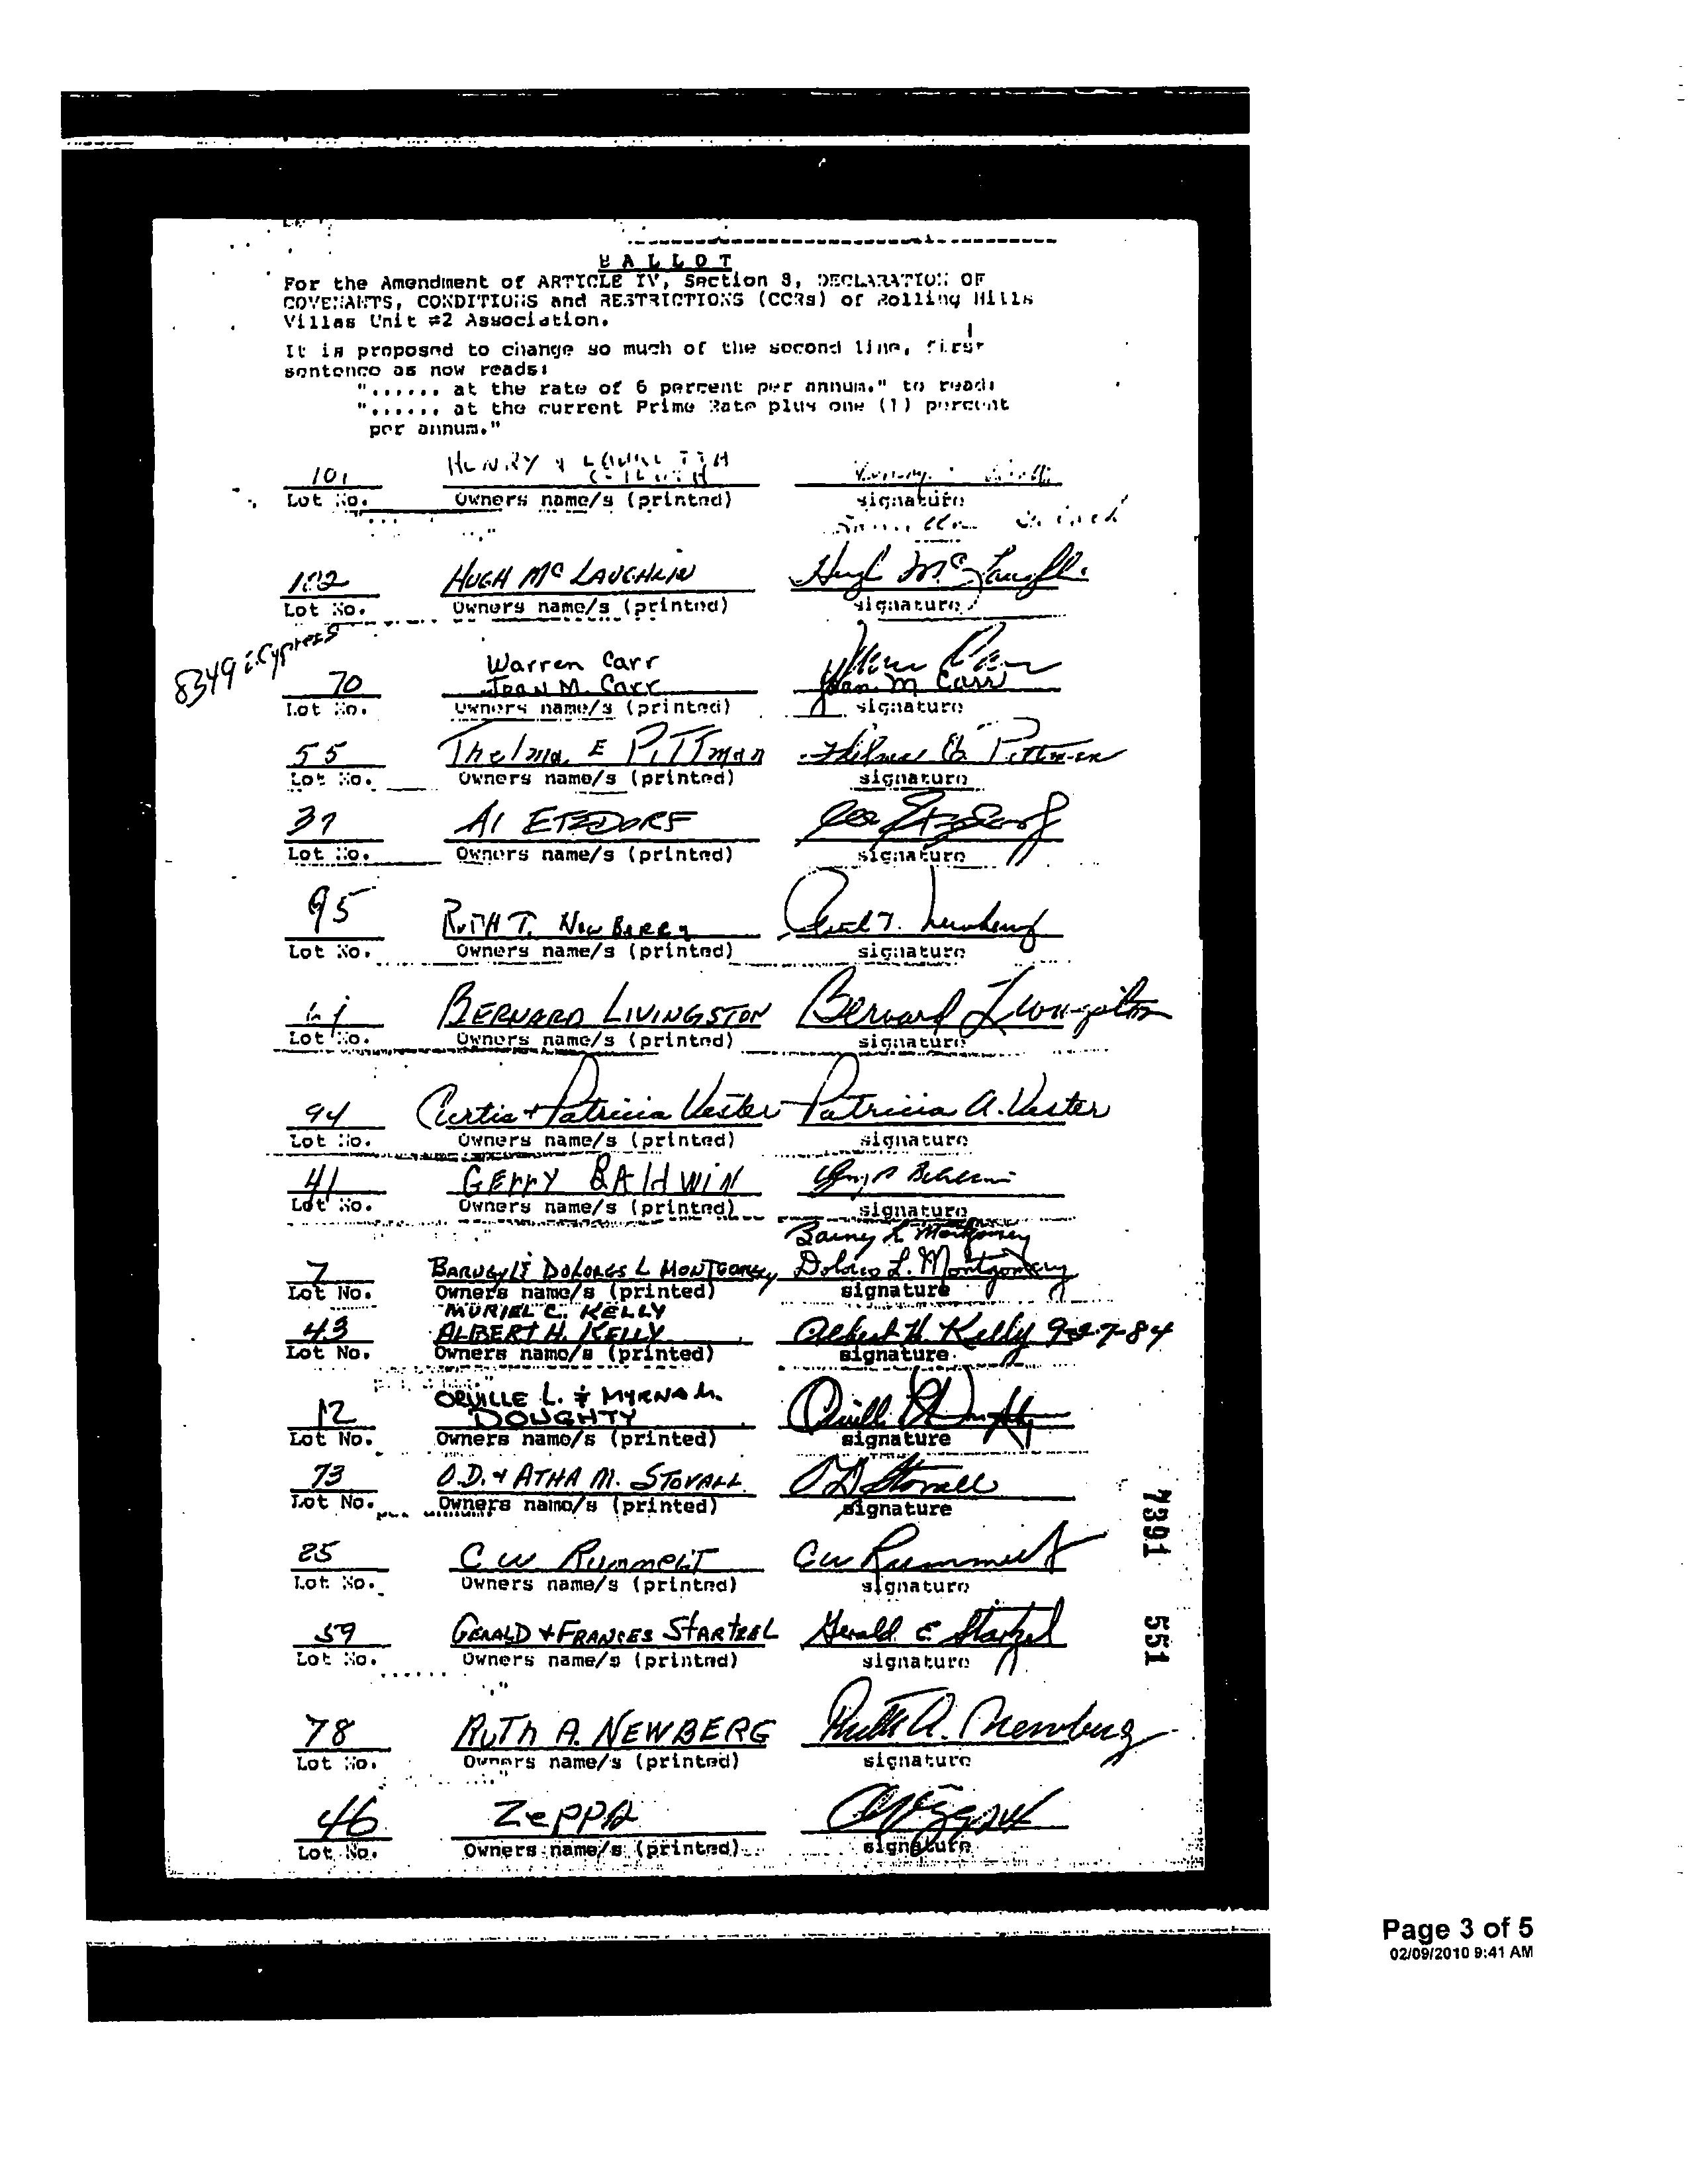 BALLOT
For the Amendment of ARTICLE IV, Section 8, DECLARATION OF
COVENANTS, CONDITIONS and RESTRICTIONS (CCRs) of Rolling Hills
Villas Unit #2 Association.
It is proposed to change so much of the second line, first
sentence as now reads:
"...... at the rate of 6 percent per annum." to read:
"...... at the current Prime Rate plus one (1) percent
per annum."
101 HENRY &
Lot No. Owners name/s (printed) signature
102 HUGH McLAUGHLIN Hugh McLaughlin
Lot No. Owners name/s (printed) signature
8349 E. Cypress
Warren Carr
70 Jean M. Carr Jean M Carr
Lot No. Owners name/s (printed) signature
55 Thelma E PiTTman Thelma E. Pittman
Lot No. Owners name/s (printed) signature
37 Al ETZDORF
Lot No. Owners name/s (printed) signature
95 RUTH T. NewBerry Ruth T. Newberry
Lot No. Owners name/s (printed) signature
BERNARD LIVINGSTON Bernard Livingston
Lot No. Owners name/s (printed) signature
94 Curtis + Patricia Vester Patricia A. Vester
Lot No. Owners name/s (printed) signature
41 GErrY BAldwiN
Lot No. Owners name/s (printed) signature
Barney L Montgomery
7 BARNEY L & DOLORES L MONTGOMERY Dolores L. Montgomery
Lot No. Owners name/s (printed) signature
MURIEL C. KELLY
43 ALBERT H. KELLY Albert H. Kelly 9-27-84
Lot No. Owners name/s (printed) signature
ORVILLE L. & MYRNA M.
12 DOUGHTY
Lot No. Owners name/s (printed) signature
73 O.D. & ATHA M. STOVALL O D Stovall
Lot No. Owners name/s (printed) signature
25 C W RummelT CW Rummelt
Lot No. Owners name/s (printed) signature
59 GERALD & FRANCES STARTZEL Gerald E Startzel
Lot No. Owners name/s (printed) signature
78 RUTh A. NEWBERG Ruth A. Newberg
Lot No. Owners name/s (printed) signature
46 ZePPA
Lot No. Owners name/s (printed) signature
7391 551
Page 3 of 5
02/09/2010 9:41 AM